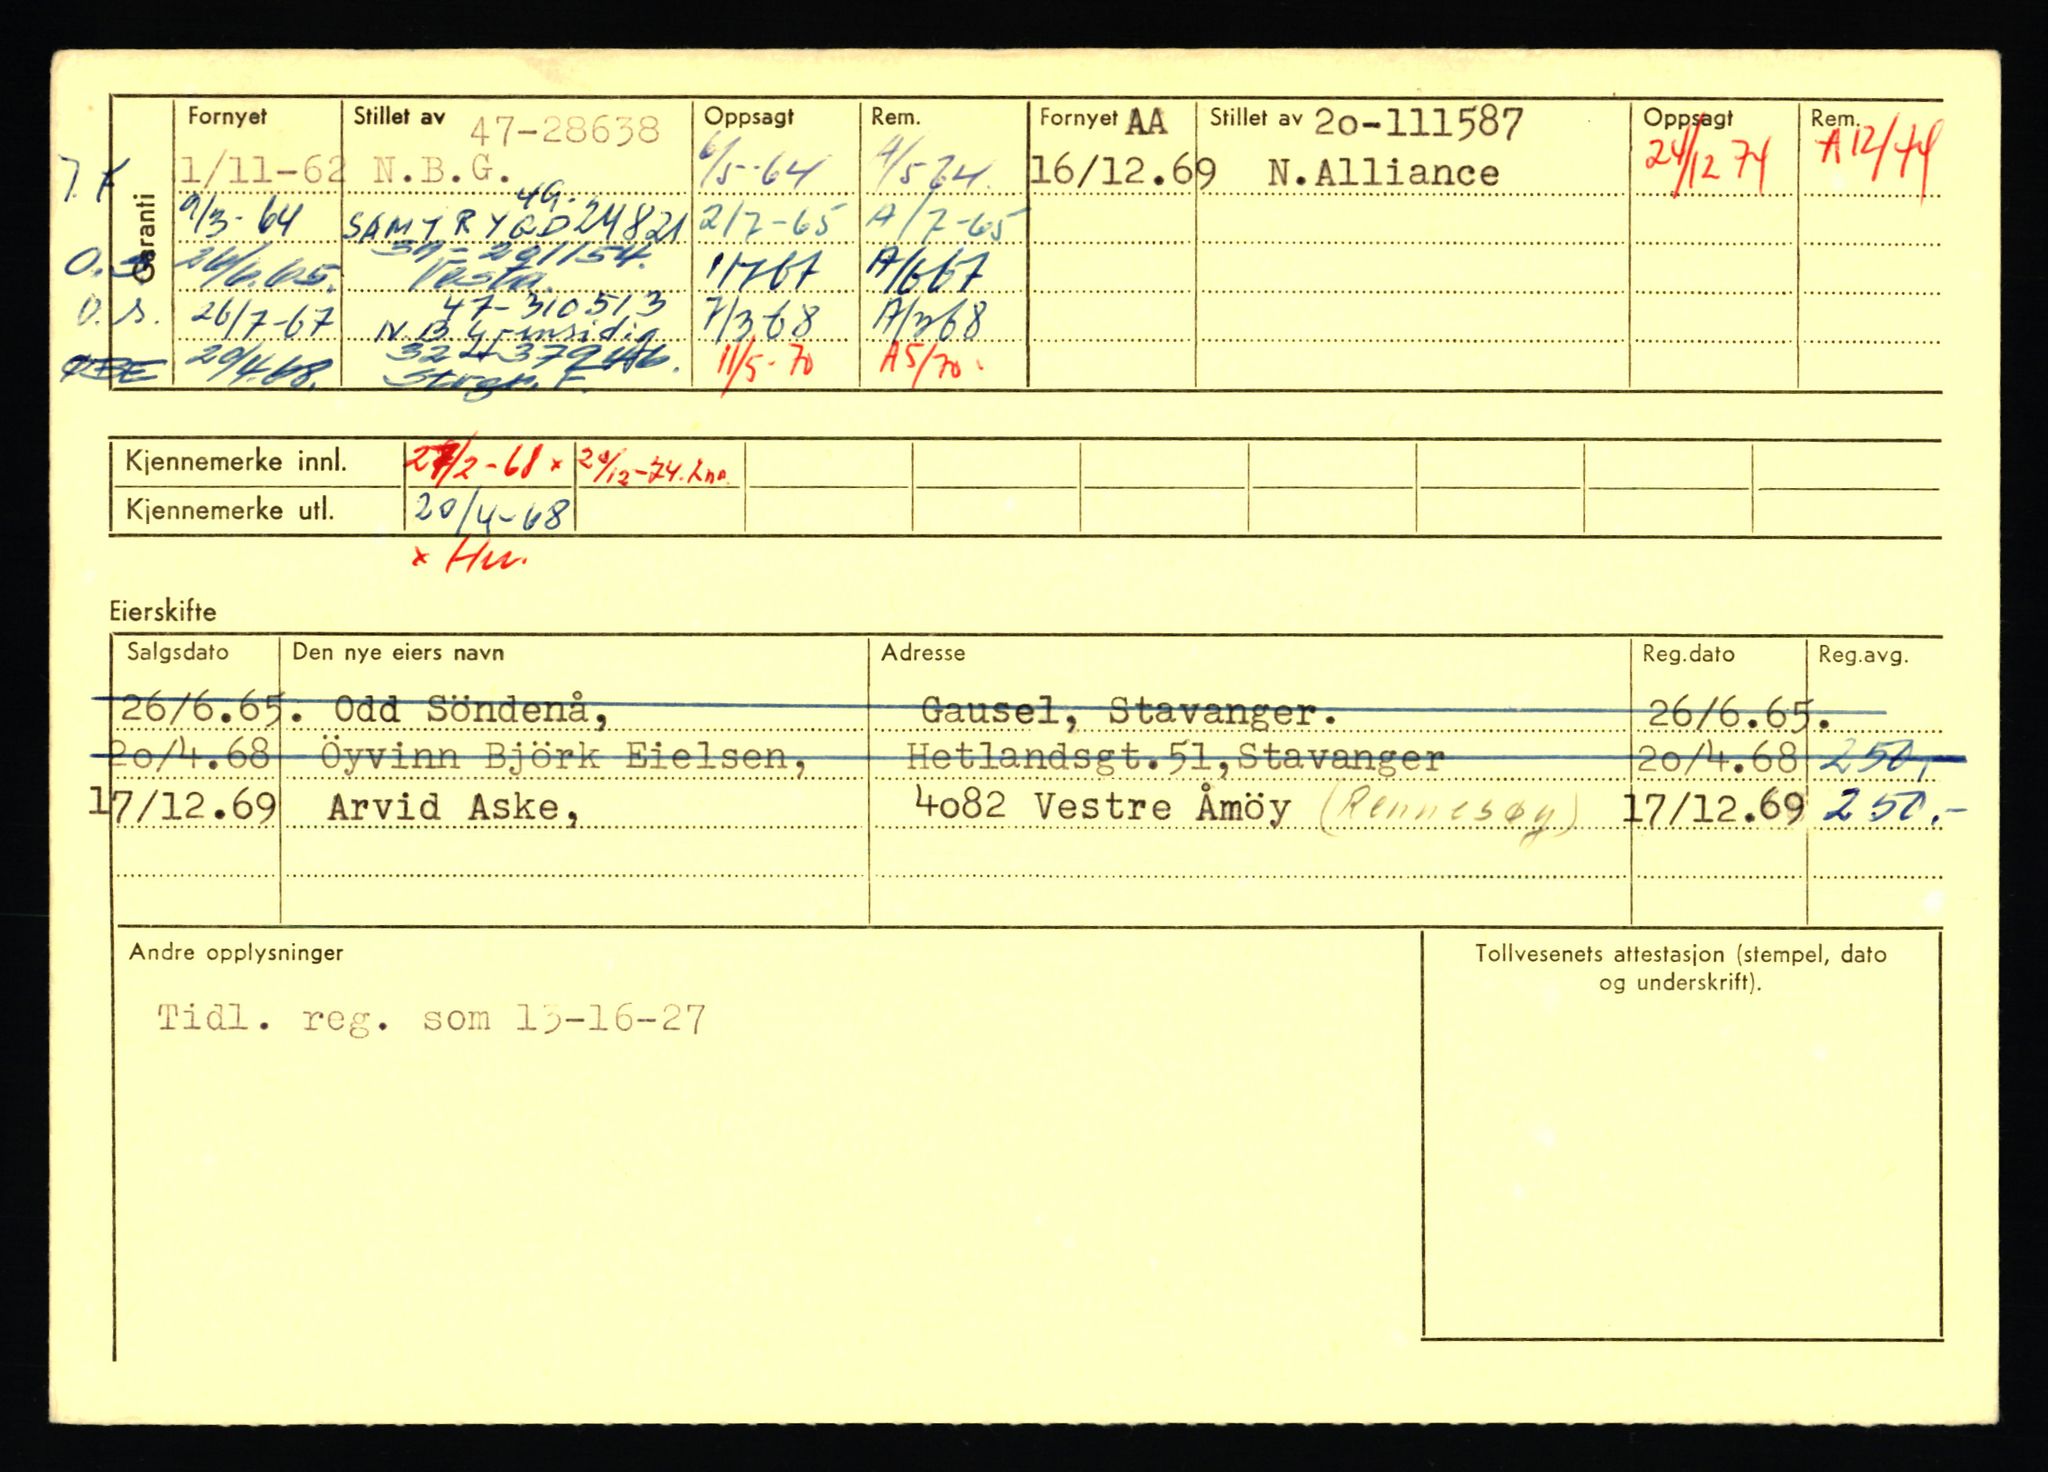 Garanti
Fornyet Stillet av 47-28638 Oppsagt Rem. Fornyet AA Stillet av 2o-111587 Oppsagt Rem.
1/11-62 N.B.G. 6/5-64 A/5 64. 16/12.69 N.Alliance 24/12 74 A 12/74
49-
9/3-64 SAMTRYGD 24821 2/7-65 A/7-65
39-291154.
O.S 26/6.65. Vesta. 1/7 67 A/6 67
47-310513
O.S. 26/7-67 7/3 68 A/3 68
ØBE 20/4.68. 11/5-70 A5/70.
Kjennemerke innl. 27/2-68 x 20/12-74.
Kjennemerke utl. 20/4-68
x
Eierskifte
Salgsdato Den nye eiers navn Adresse Reg.dato Reg.avg.
26/6.65. Odd Söndenå, Gausel, Stavanger. 26/6.65.
2o/4.68 Öyvinn Björk Eielsen, Hetlandsgt.51,Stavanger 2o/4.68 250,-
17/12.69 Arvid Aske, 4o82 Vestre Åmöy (Rennesøy) 17/12.69 250.-
Andre opplysninger
Tollvesenets attestasjon (stempel, dato
og underskrift).
Tidl. reg. som 13-16-27